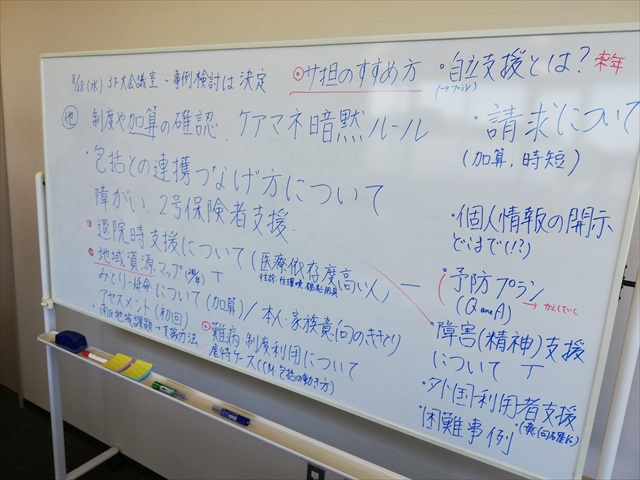 8/28(水) 3F大会議室 - 事例検討は決定
サ担のすすめ方
・自立支援とは? 来年
(→プラン)
他 制度や加算の確認、ケアマネ暗黙ルール
・請求について
(加算、時短)
・包括との連携つなげ方について
障がい、2号保険者支援
・個人情報の開示
どこまで(!?)
退院時支援について(医療依存度高い人)
地域資源マップ
・予防プラン
(Q and A)
みとり・延命について(加算)/本人・家族意向のききとり
アセスメント(初回)
・障害(精神)支援
について
地域課題→実施方法
難病 制度利用について
虐待ケース(CM、包括の動き方)
・外国利用者支援
・困難事例